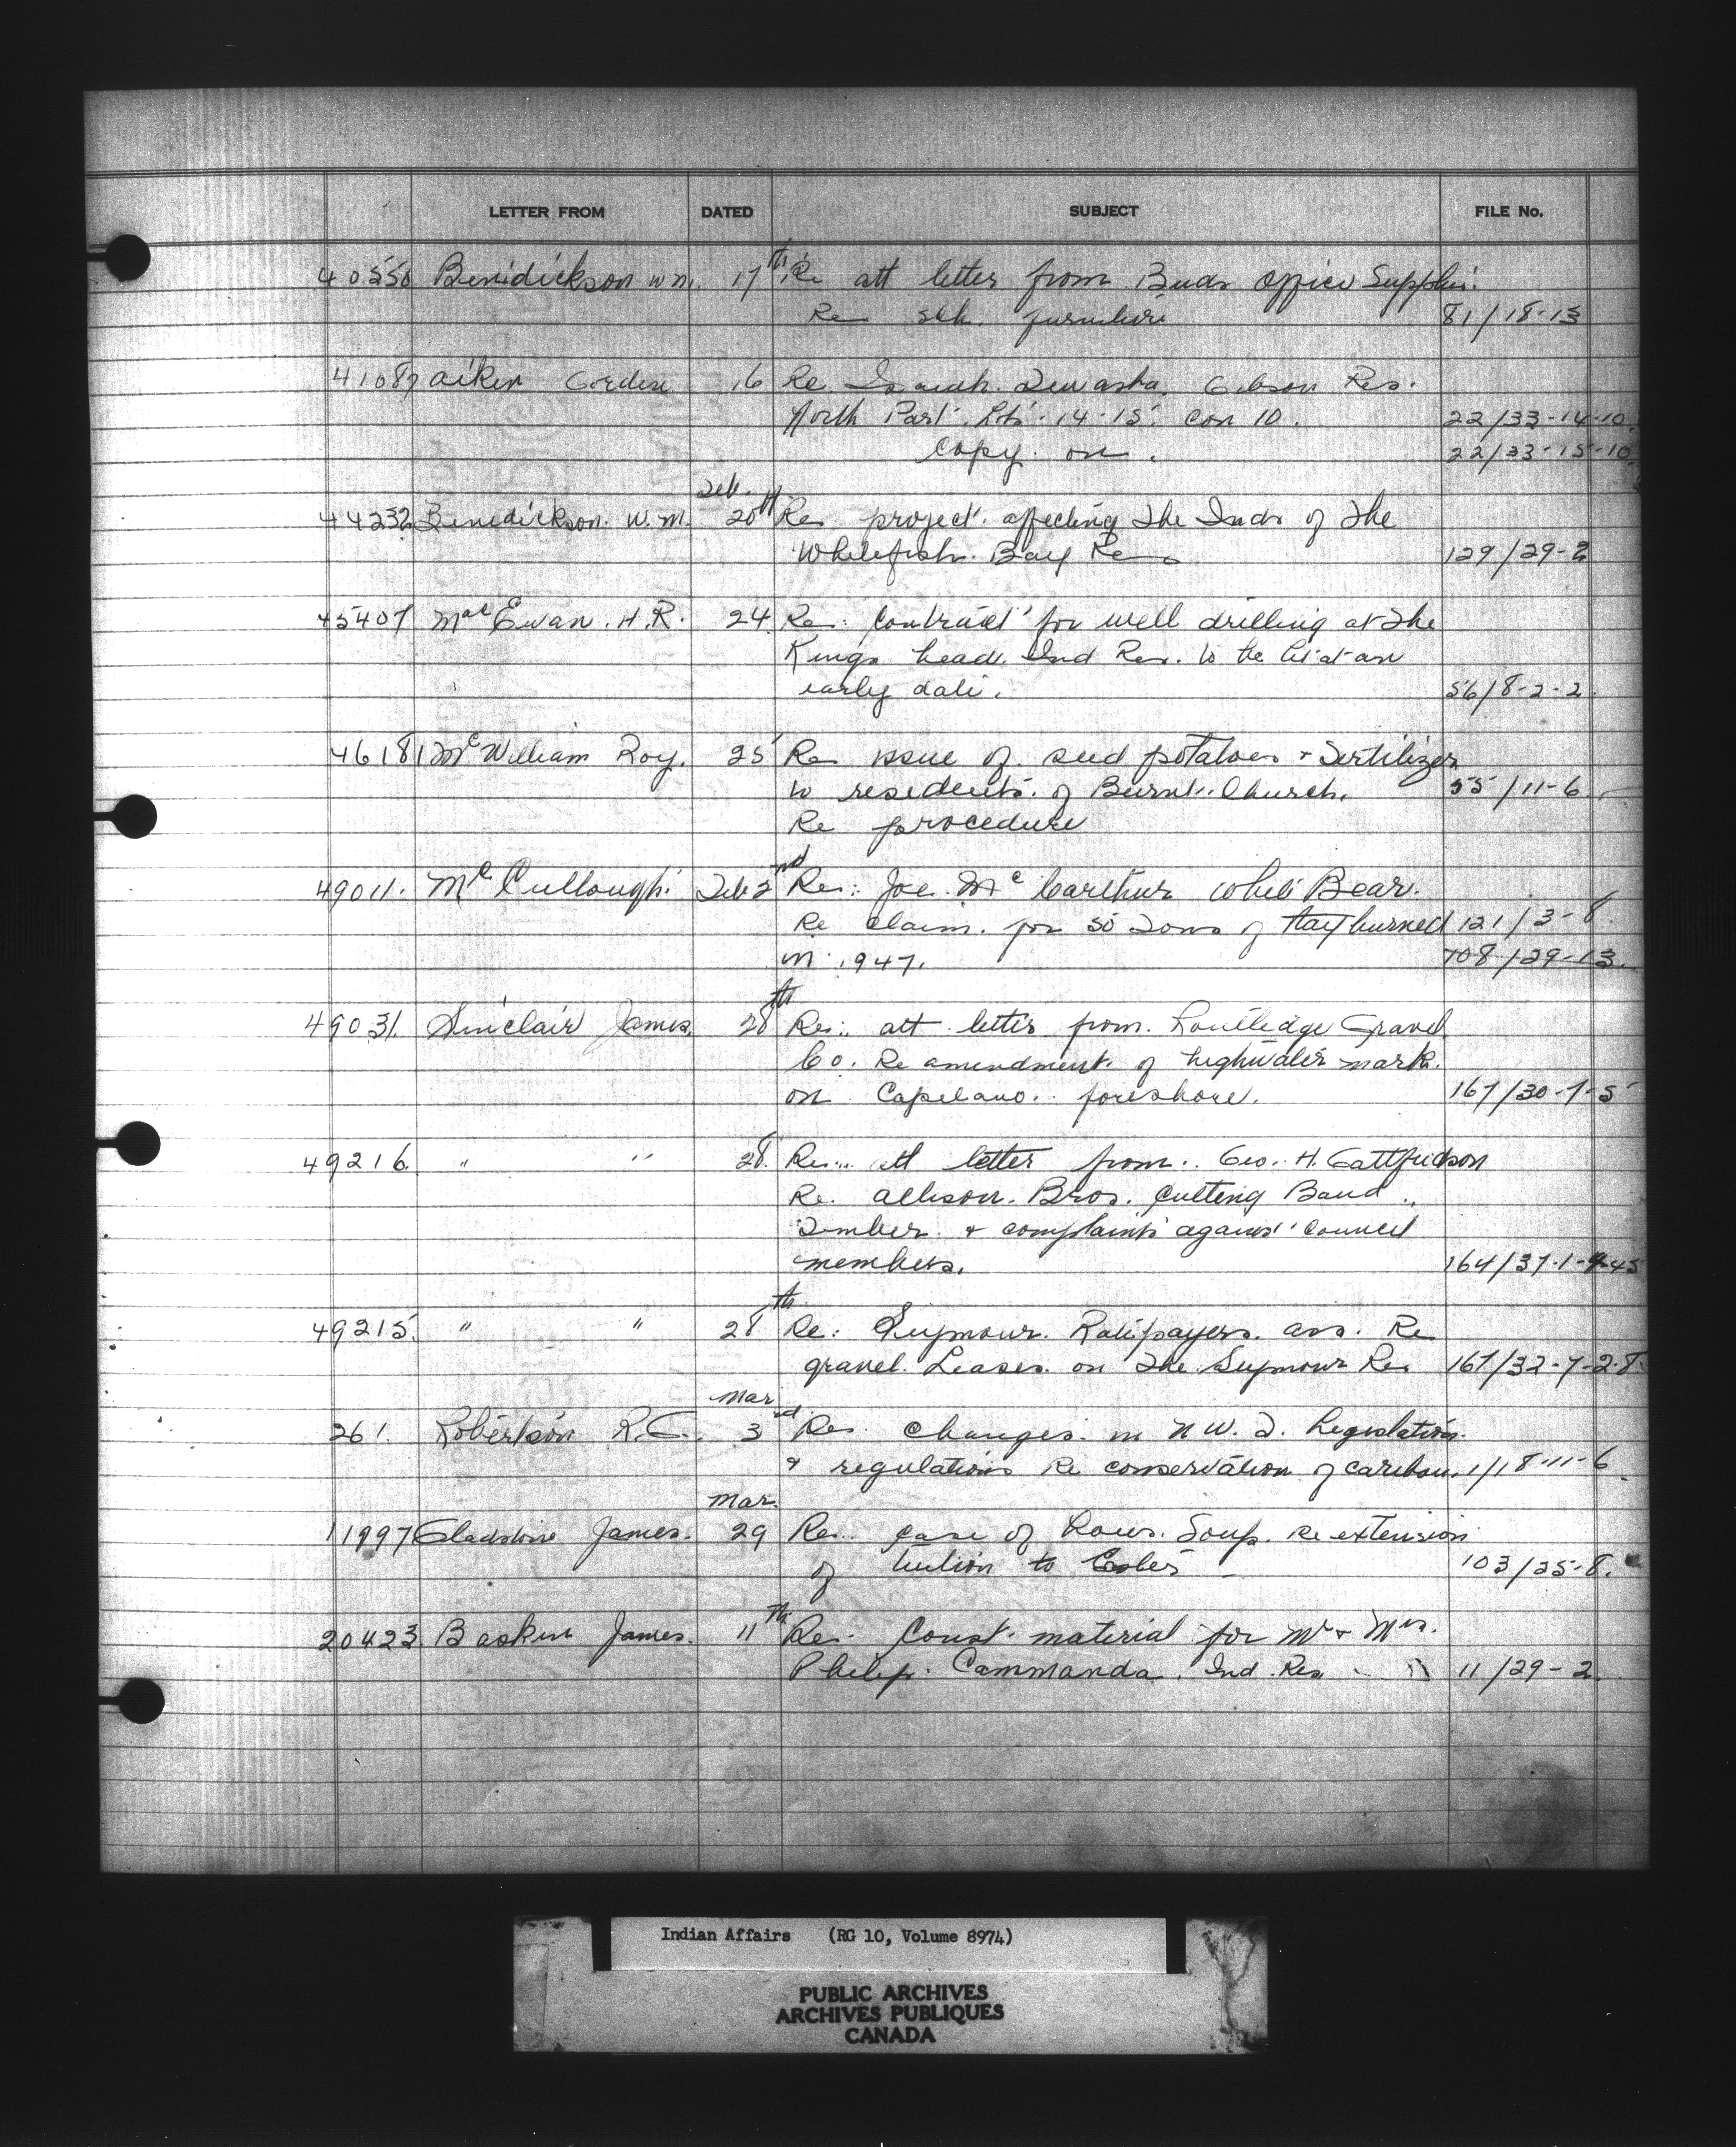 LETTER FROM DATED SUBJECT FILE No.
40550 Benidickson W M. 17th Re att letter from Buds Office Supplies.
Re sch. furniture 81/18-13
41087 Aiken Gorden 16 Re Isaiah. Gibson Res.
North Part. Lots. 14-15. Con 10. 22/33-14-10
Copy. on. 22/33-15-10
Feb.
44232 Benedickson. W.M. 20th Re project. affecting The Inds of The
Whitefish. Bay Res 129/29-2
45407 MacEwan. H.R. 24 Re: Contract for well drilling at The
Kings head. Ind Res. to be let at an
early date. 56/8-2-2
46181 McWilliam Roy. 25 Re issue of seed potatoes & Fertilizer
to residents. of Burnt. Church. 55/11-6
Re procedure
49011. McCullough. Feb 2nd Re: Joe. McCarthur White Bear.
Re Claim. for 50 Tons of Hay burned 121/3-8.
in 1947. 708/29-13.
49031. Sinclair James. 28th Re: att letter from. Routledge Gravel
Co. Re amendment. of highwater mark.
on Capelano. foreshore. 167/30-7-5
49216. " " 28. Re: att letter from.. Geo. H. Gattfridson
Re. Allison. Bros. Cutting Band.
Timber. & complaints against council
members. 164/37-1-9-45
49215. " " 28th Re: Seymour. Ratepayers. Ass. Re
gravel. Leases. on The Seymour Res 167/32-7-2-8.
Mar
261. Robertson R.G. 3rd Re. Changes. in N.W.T. Legislation.
& regulations Re conservation of caribou. 1/18-11-6
Mar.
11997 Gladstone James. 29 Re: case of Lours. Soup. re extension
of tuition to 103/25-8.
20423. Baskin James. 11th Re. Const. material for Mr & Mrs.
Philip. Cammanda. Ind. Res 11/29-2
Indian Affairs (RG 10, Volume 8974)
PUBLIC ARCHIVES
ARCHIVES PUBLIQUES
CANADA